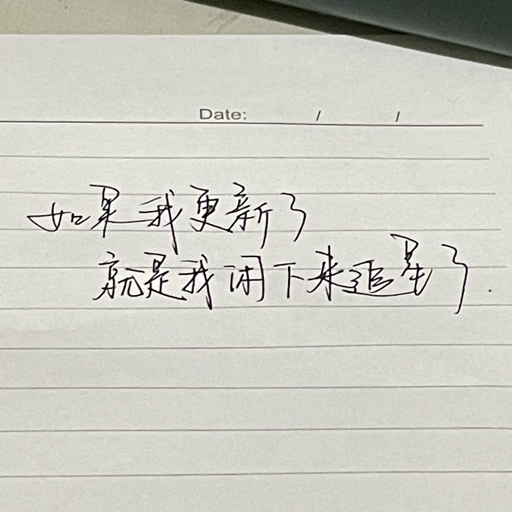 Date: / /
如果我更新了
就是我闲下来追星了.